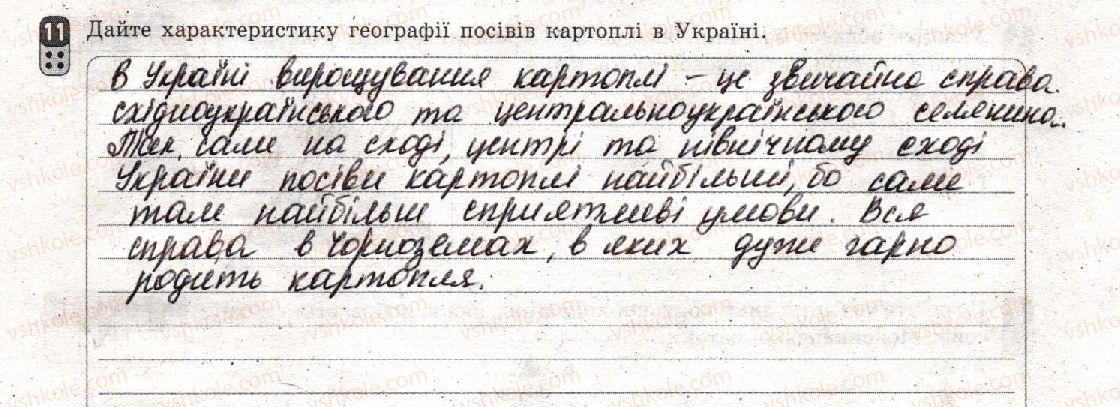 11 Дайте характеристику географії посівів картоплі в Україні.
В Україні вирощування картоплі – це звичайна справа
східноукраїнського та центральноукраїнського селянина.
Так само на сході, центрі та північному сході
України посіви картоплі найбільші, бо саме
там найбільш сприятливі умови. Вся
справа в чорноземах, в яких дуже гарно
родить картопля.